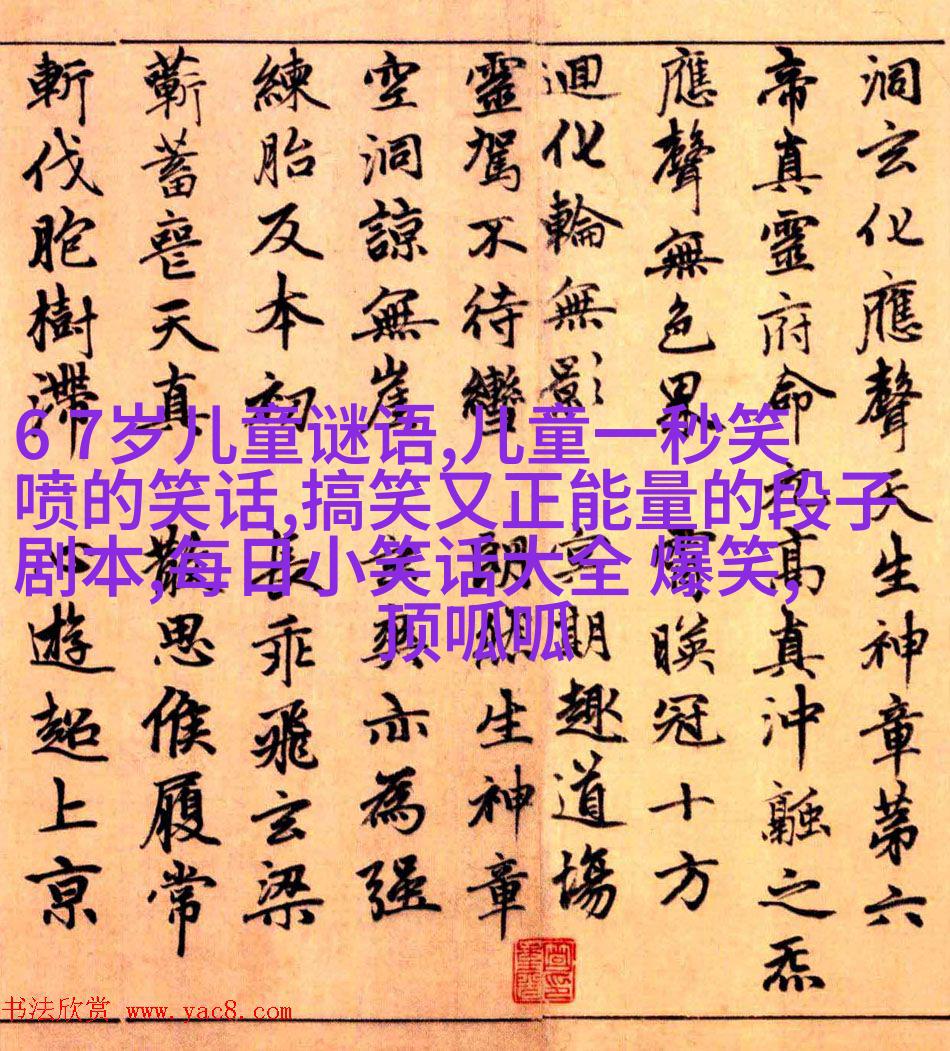 6 7岁儿童谜语,儿童一秒笑
喷的笑话,搞笑又正能量的段子
剧本,每日小笑话大全 爆笑,
顶呱呱
洞玄化應聲天生神章第六
帝真靈府命高真沖融之炁
應聲無色界霄暎冠十方
迴化輪無影期趣道場
靈駕不待轡生神章
空洞諒無崖亦為强
練胎反本初長乖飛玄梁
蘄蓄喪天真散思候履常
斬伐胞樹滯心遊超上京
书法欣赏 www.yac8.com